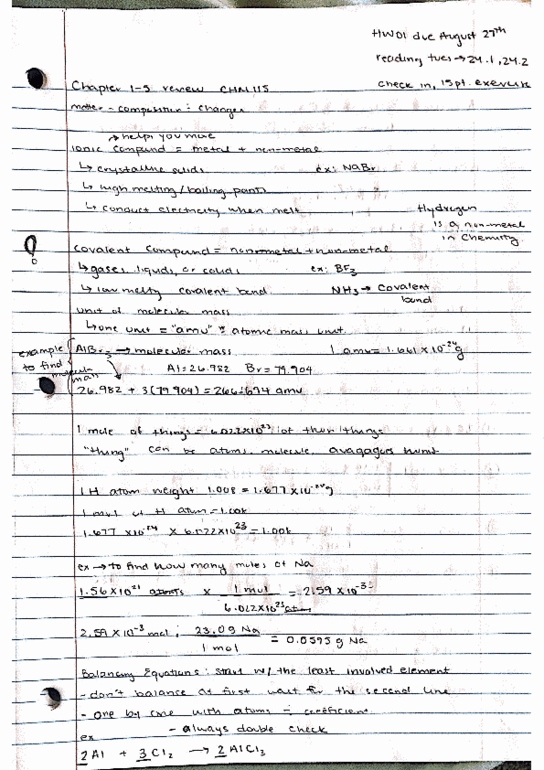 HW01 due August 27th
reading tues → 24.1, 24.2
check in, 15pt. exercise
Chapter 1-5 review CHM 115
matter - composition : changes
→ helps you more
Ionic compund = metal + non-metal
↳ crystalline solids ex: NaBr
↳ high melting/boiling points
↳ conduct electricity when melt
Hydrogen
is a non-metal
in Chemistry.
covalent compound = nonmetal + nonmetal
↳ gases, liquids, or solids ex: BF3
↳ low melty covalent bond NH3 → Covalent
bond
unit of molecular mass
↳ one unit = "amu" = atomic mass unit
example to find molecular mass
AlBr3 → molecular mass 1 amu = 1.661 x 10^-24 g
Al = 26.982 Br = 79.904
26.982 + 3(79.904) = 266.694 amu
1 mole of things = 6.022x10^23 of them things
"thing" can be atoms, molecule, avagadros numb
1 H atom weight 1.008 = 1.677 x 10^-24 g
1 mol of H atom = 1.008
1.677 x 10^-24 x 6.022 x 10^23 = 1.008
ex → to find how many moles of Na
1.56 x 10^21 atoms x 1 mol / 6.022x10^23 atm = 2.59 x 10^-3
2.59 x 10^-3 mol ; 23.09 Na / 1 mol = 0.0595 g Na
Balancing Equations : start w/ the least involved element
- don't balance at first wait for the second line
- one by one with atoms = coefficient
ex - always double check
2Al + 3Cl2 → 2AlCl3